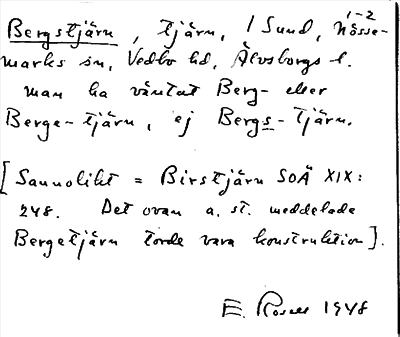 Bergstjärn, tjärn, 1 Sund, 1-2 Nösse-
marks sn, Vedbo hd, Älvsborgs l.
man ha väntat Berg- eller
Berge-tjärn, ej Bergs-tjärn.
[Sannolikt = Birstjärn SOÄ XIX:
248. Det ovan a. st. meddelade
Bergetjärn torde vara konstruktion].
E. Rosell 1948